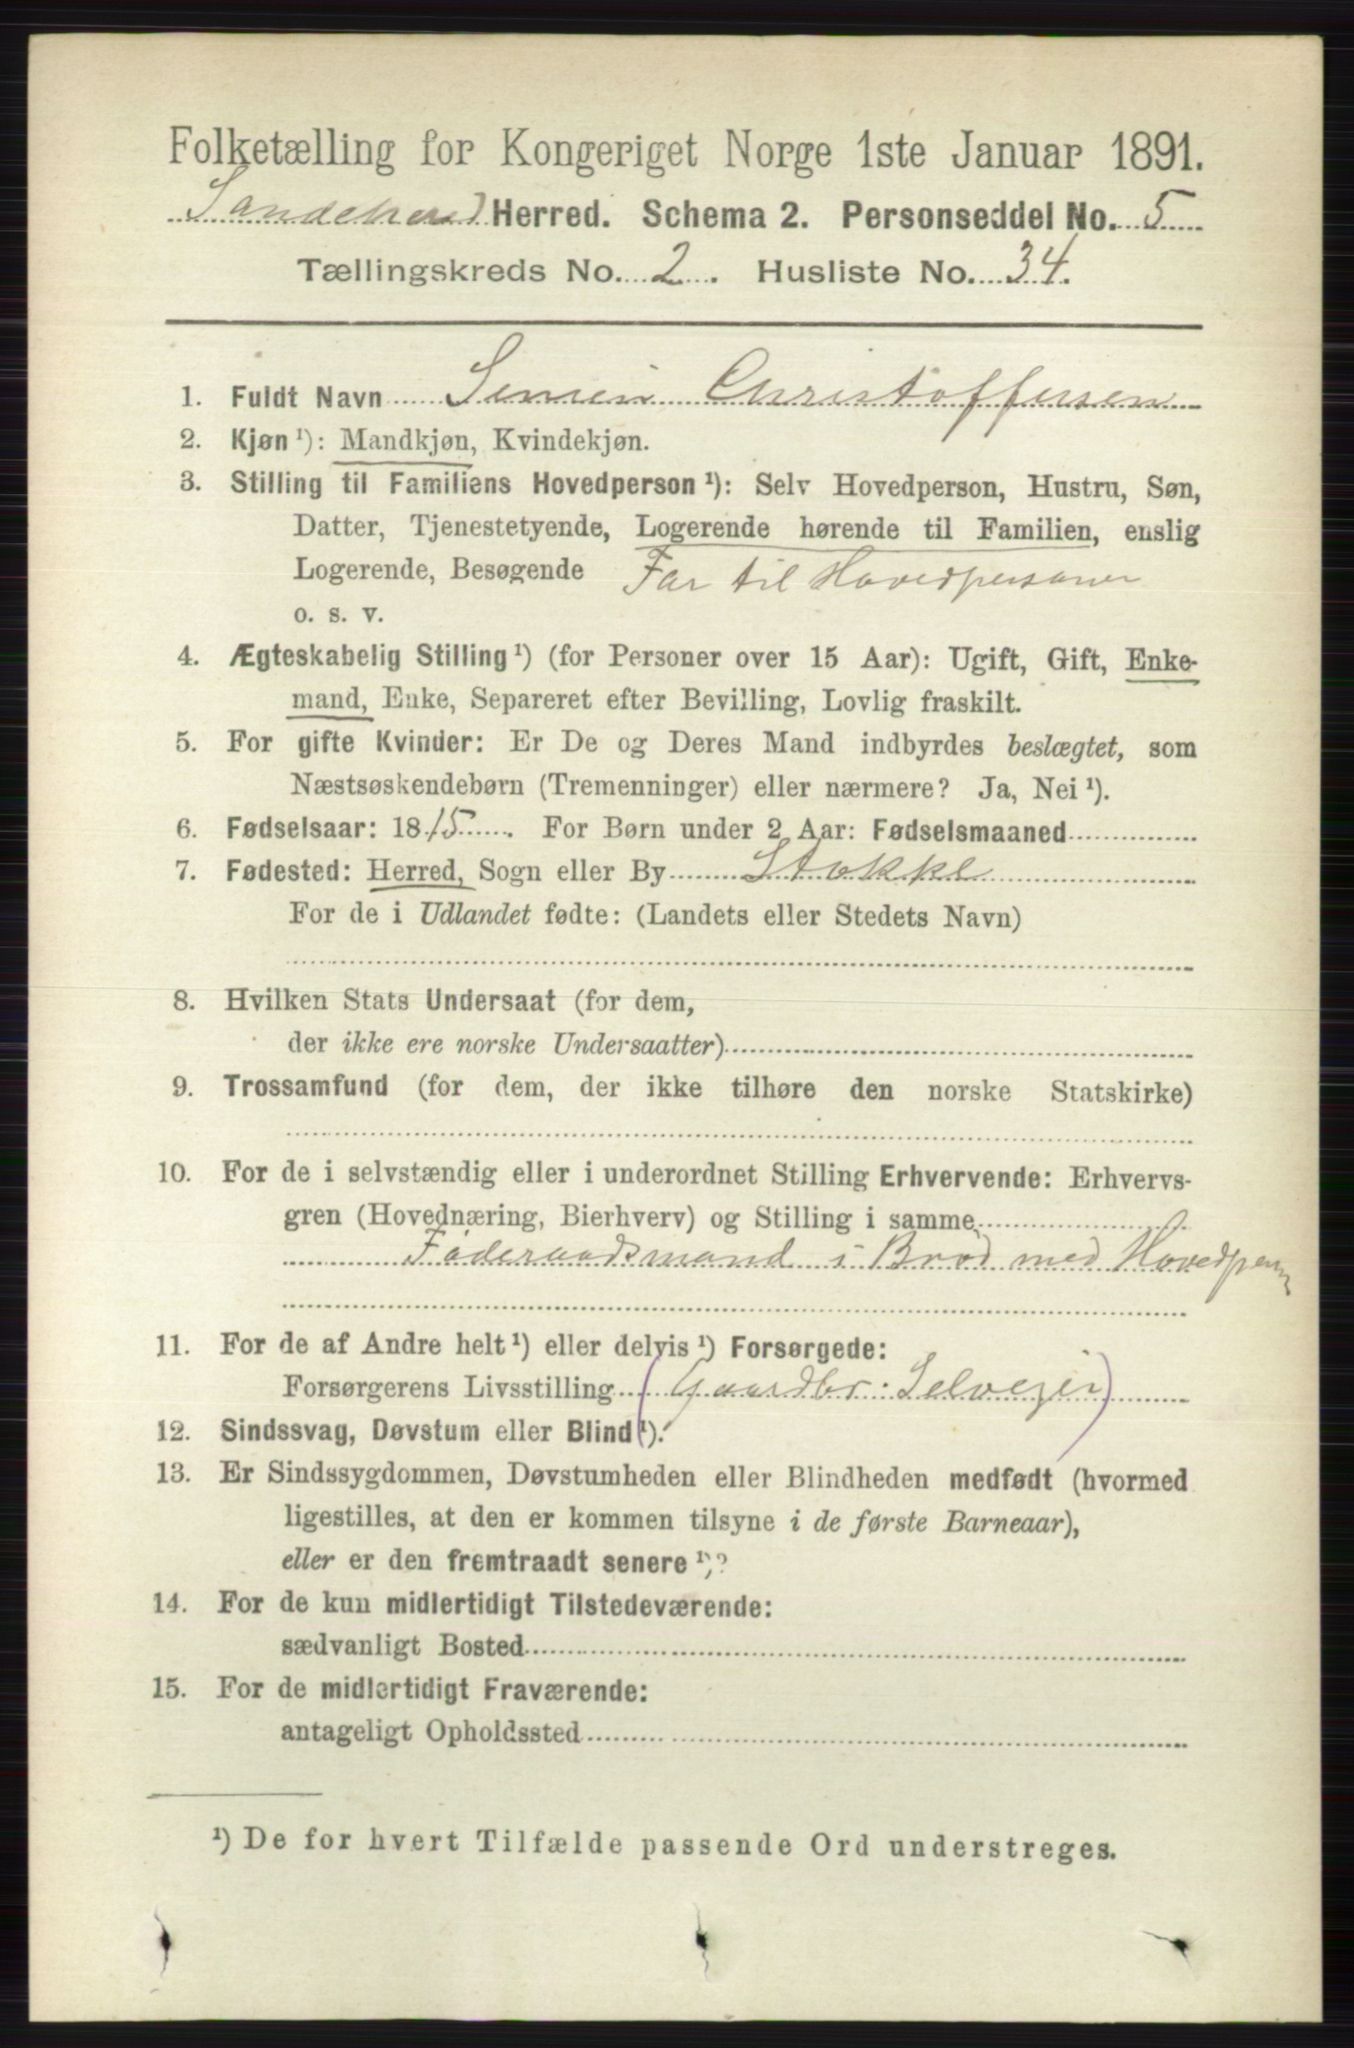 Folketælling for Kongeriget Norge 1ste Januar 1891.
Sandeherred Herred. Schema 2. Personseddel No. 5
Tællingskreds No. 2. Husliste No. 34.
1. Fuldt Navn Simen Christoffersen
2. Kjøn ¹): Mandkjøn, Kvindekjøn.
3. Stilling til Familiens Hovedperson ¹): Selv Hovedperson, Hustru, Søn,
Datter, Tjenestetyende, Logerende hørende til Familien, enslig
Logerende, Besøgende Far til Hovedpersonen
o. s. v.
4. Ægteskabelig Stilling ¹) (for Personer over 15 Aar): Ugift, Gift, Enke-
mand, Enke, Separeret efter Bevilling, Lovlig fraskilt.
5. For gifte Kvinder: Er De og Deres Mand indbyrdes beslægtet, som
Næstsøskendebørn (Tremenninger) eller nærmere? Ja, Nei ¹).
6. Fødselsaar: 1815. For Børn under 2 Aar: Fødselsmaaned
7. Fødested: Herred, Sogn eller By Stokke
For de i Udlandet fødte: (Landets eller Stedets Navn)
8. Hvilken Stats Undersaat (for dem,
der ikke ere norske Undersaatter)
9. Trossamfund (for dem, der ikke tilhøre den norske Statskirke)
10. For de i selvstændig eller i underordnet Stilling Erhvervende: Erhvervs-
gren (Hovednæring, Bierhverv) og Stilling i samme
Føderaadsmand i Brød med Hovedpersn
11. For de af Andre helt ¹) eller delvis ¹) Forsørgede:
Forsørgerens Livsstilling (Gaardbr. Selveier)
12. Sindssvag, Døvstum eller Blind ¹).
13. Er Sindssygdommen, Døvstumheden eller Blindheden medfødt (hvormed
ligestilles, at den er kommen tilsyne i de første Barneaar),
eller er den fremtraadt senere ¹)?
14. For de kun midlertidigt Tilstedeværende:
sædvanligt Bosted
15. For de midlertidigt Fraværende:
antageligt Opholdssted
¹) De for hvert Tilfælde passende Ord understreges.